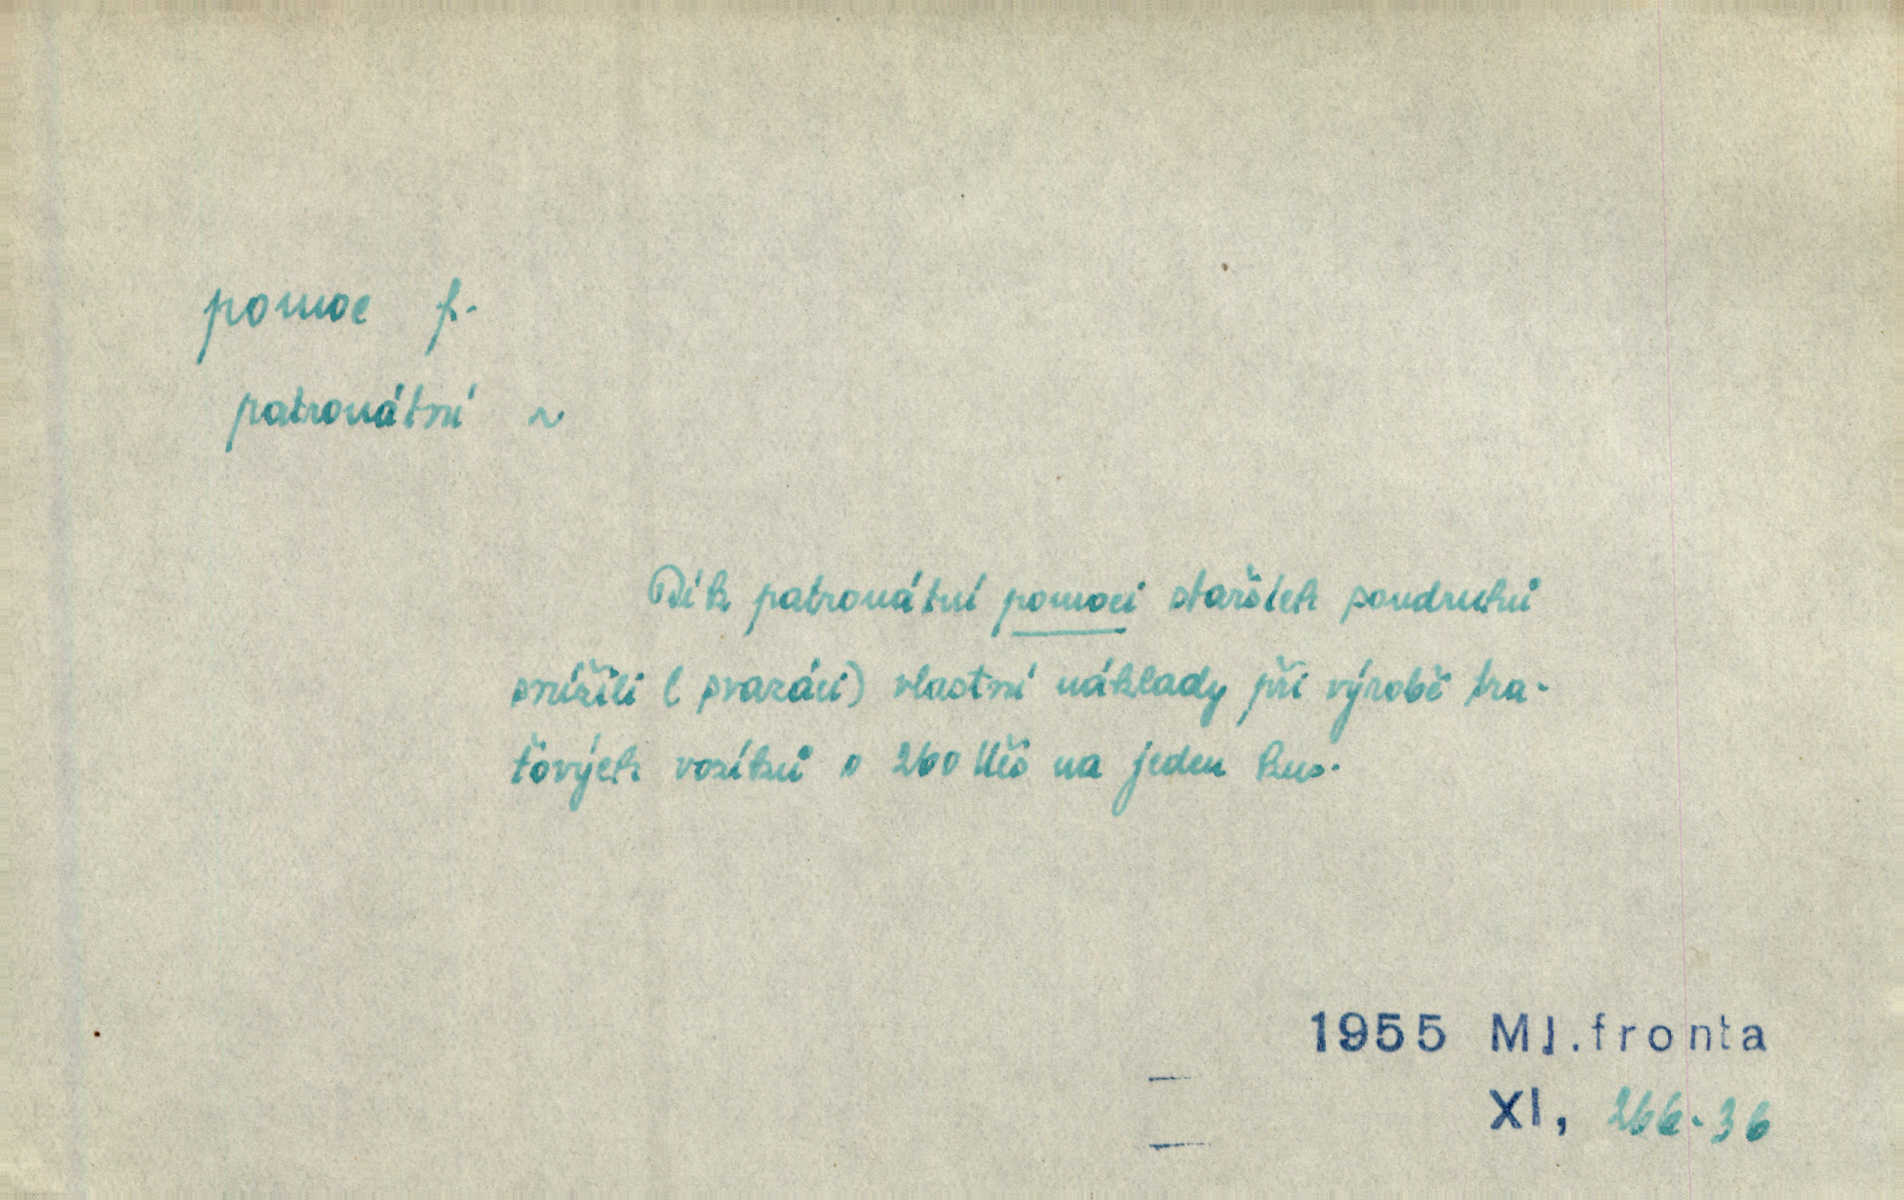 pomoc f.
patronátní ~
Dík patronátní pomoci starších soudruhů
snížili ( svazáci) vlastní náklady při výrobě tra-
ťových vozíků o 260 Kčs na jeden kus.
1955 Ml.fronta
XI, 266.36